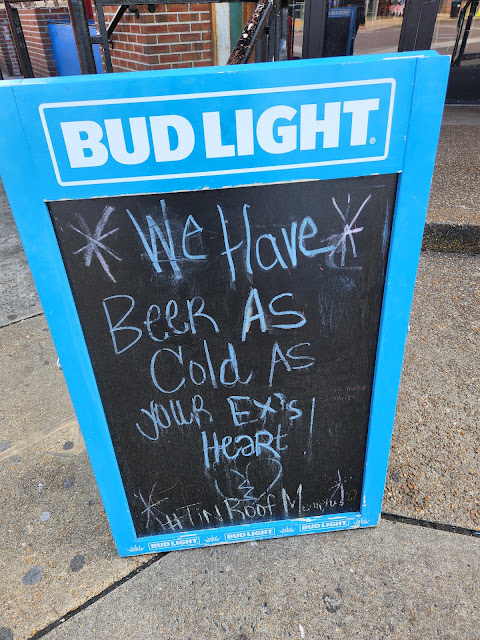 BUD LIGHT®
We Have
Beer As
Cold As
your Ex's
Heart
#Tin Roof Memphis
BUD LIGHT BUD LIGHT BUD LIGHT